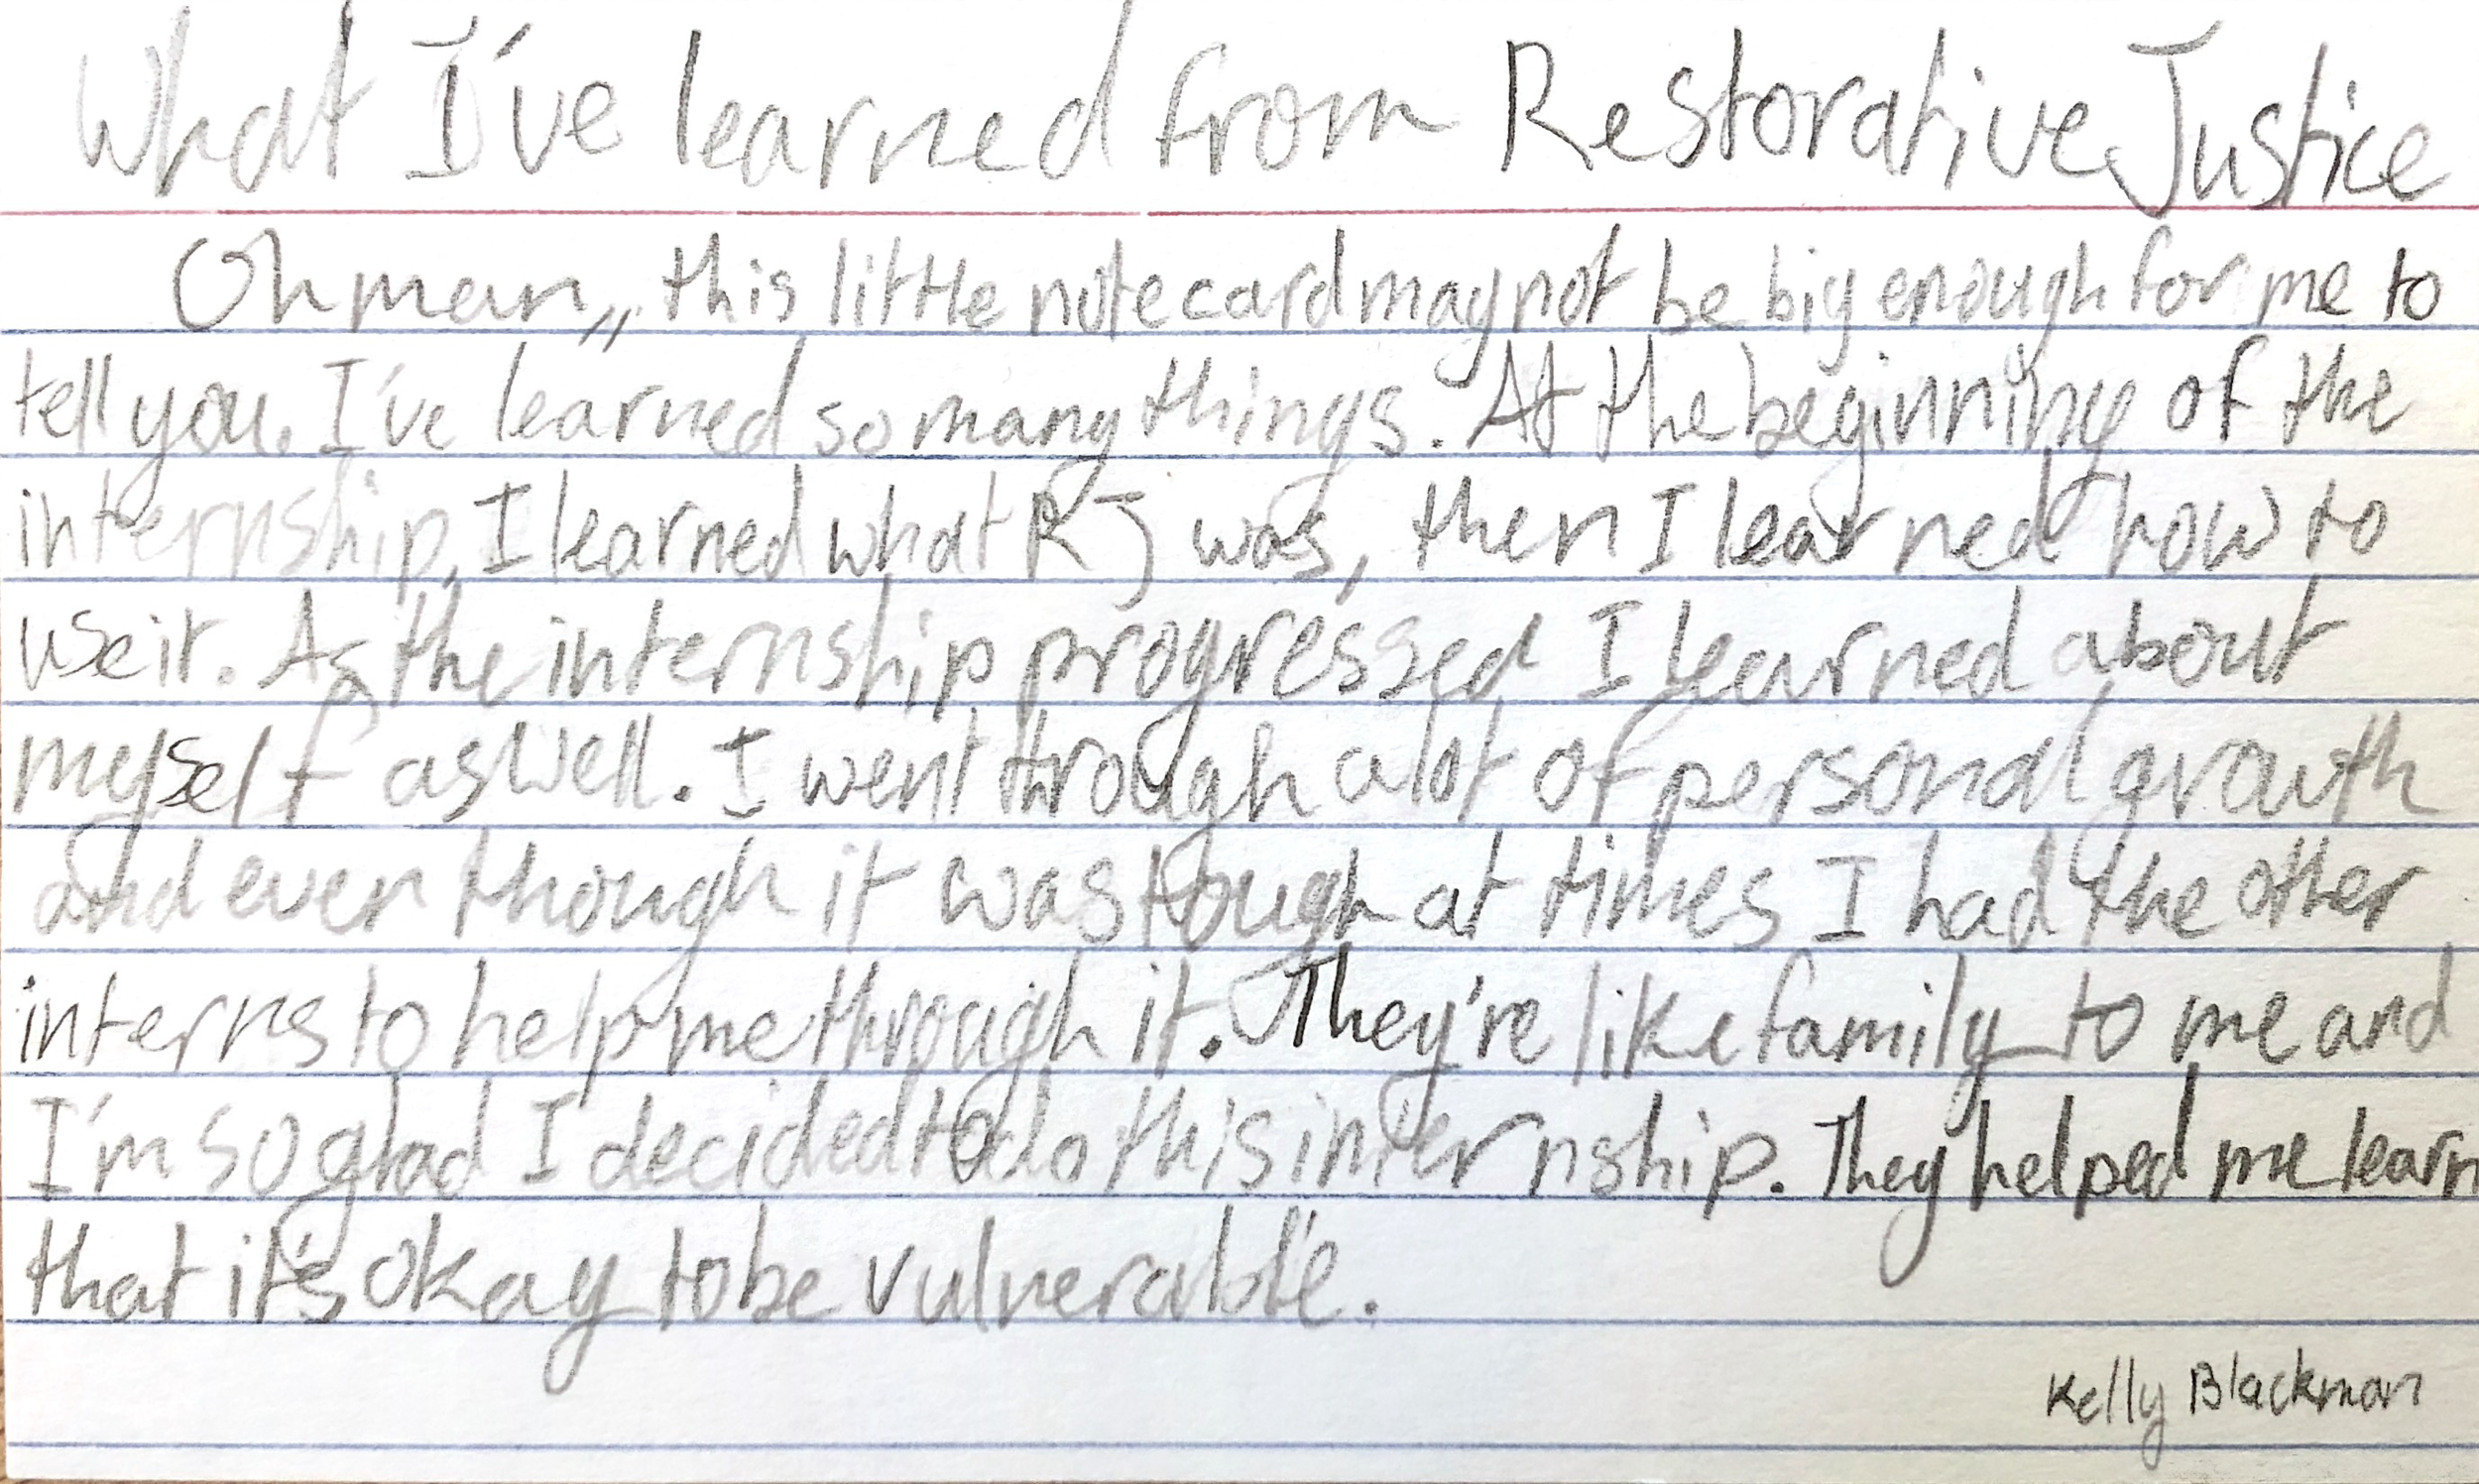 What I've learned from Restorative Justice
Oh man,, this little notecard may not be big enough for me to
tell you. I've learned so many things. At the beginning of the
internship, I learned what RJ was, then I learned how to
use it. As the internship progressed I learned about
myself as well. I went through a lot of personal growth
and even though it was tough at times I had the other
interns to help me through it. They're like family to me and
I'm so glad I decided to do this internship. They helped me learn
that it's okay to be vulnerable.
Kelly Blackman